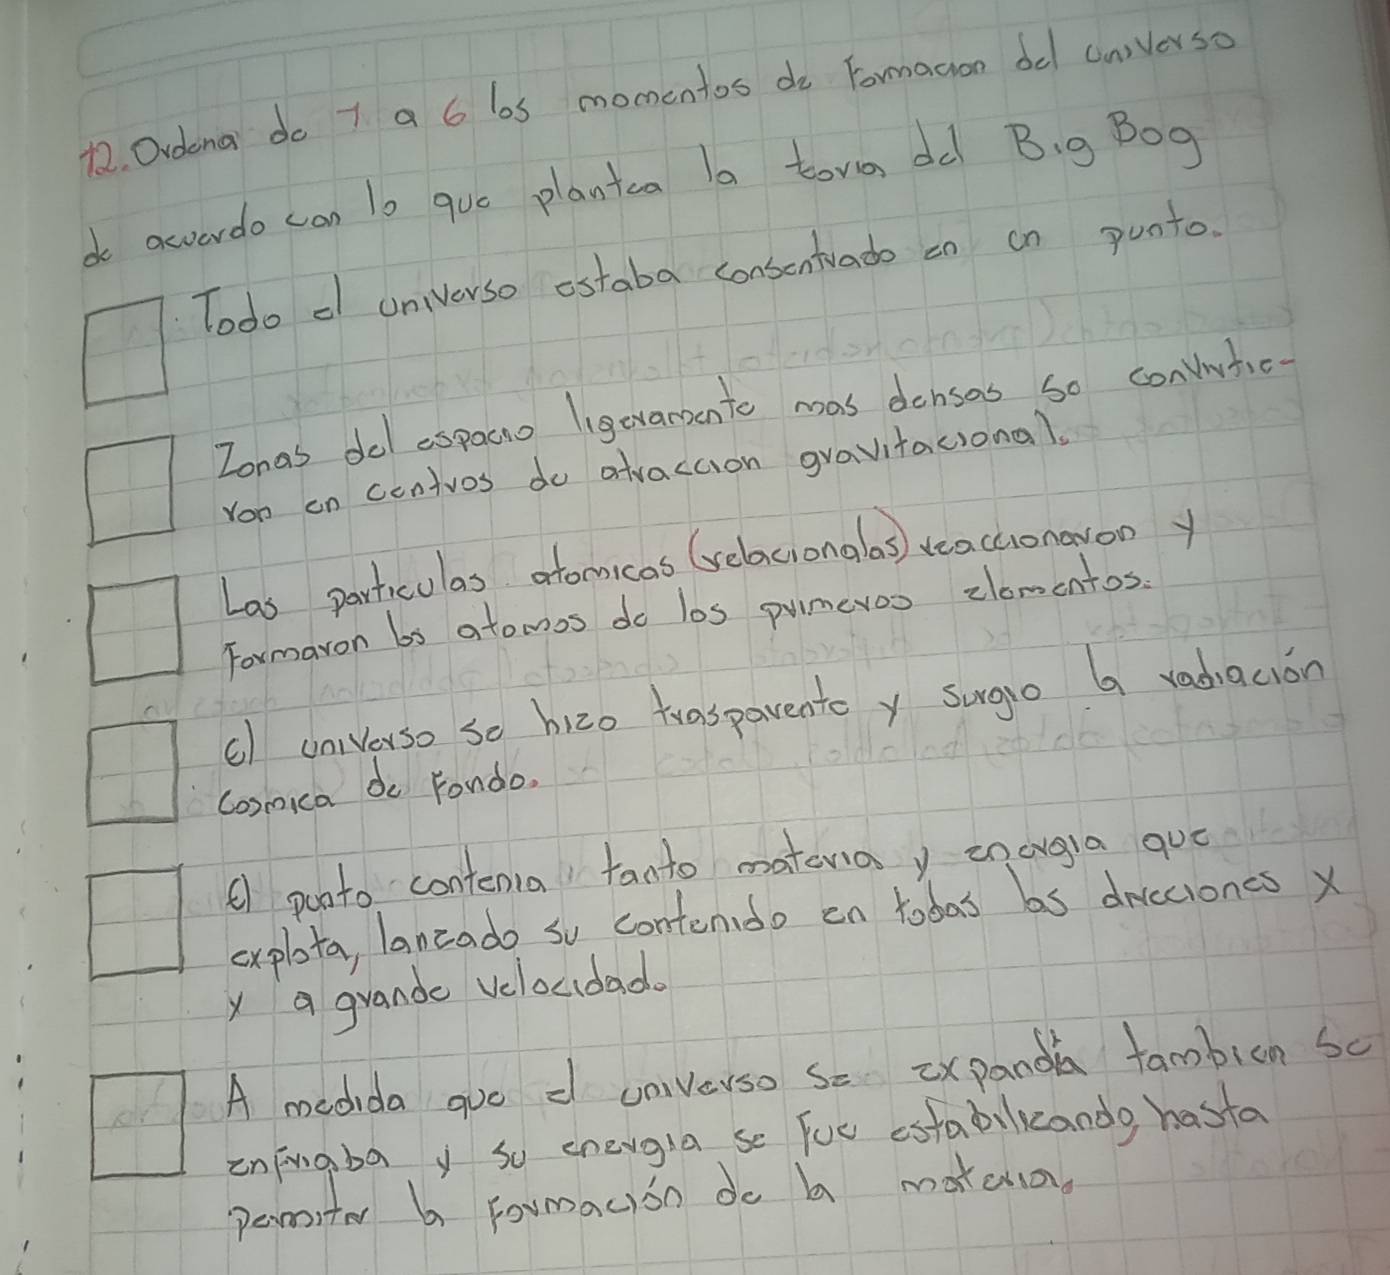 12. Ordena de 1 a 6 los momentos de Formacion del universo
de acuerdo con lo que plantea la teoria del Big Bog
Todo el universo estaba consentrado en un punto.
Zonas del espacio ligeramente mas densas se convirtie-
ron en centros de atraccion gravitacional.
Las particulas atomicas (relacionalas) reaccionaron y
Formaron los atomos de los primeros elementos.
El universo se hizo trasparente y surgio la radiación
cosmica de Fondo.
El punto contenia tanto materia y energia que
explota, lanzado su contenido en tobas las direcciones x
y a grande velocidad.
A medida que el universo se expandia tambien se
enfriaba y su energia se Fue estabilizando, hasta
permitir la Formación de la materia.